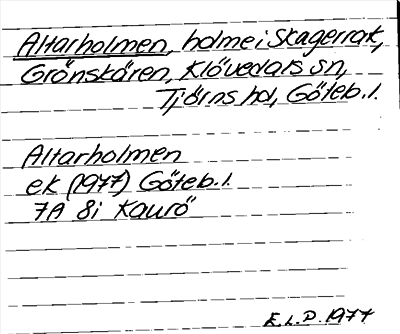 Altarholmen, holme i Skagerrak,
Grönskären, Klövedals sn,
Tjörns hd, Göteb. l.
Altarholmen
ek (1977) Göteb. l.
7A 8i Kaurö
E.L.D. 1977